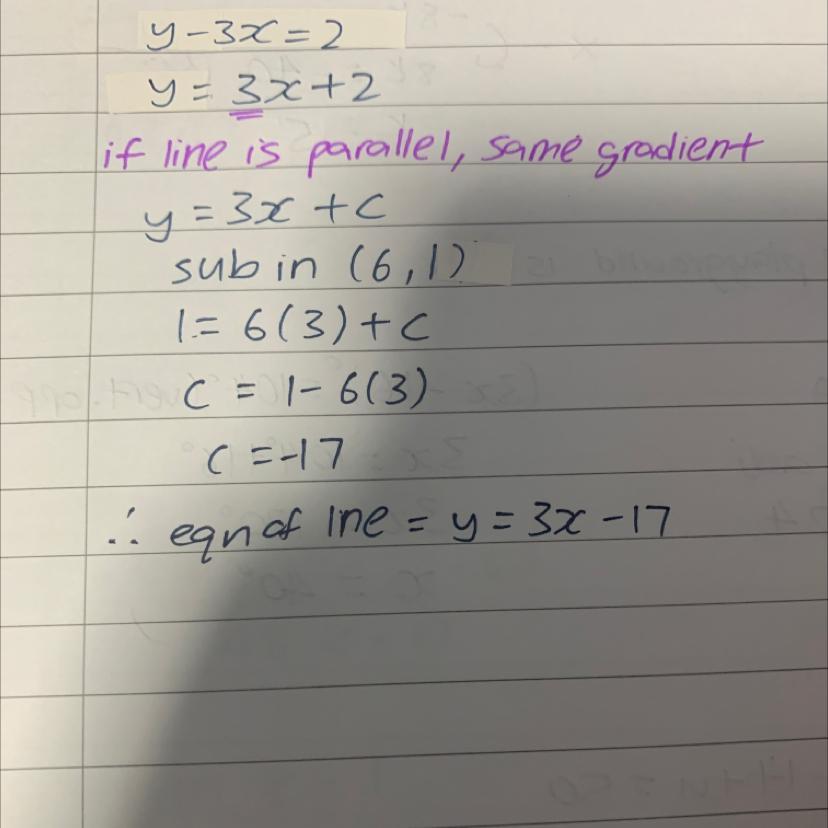 y-3x=2
y=3x+2
if line is parallel, same gradient
y=3x+c
sub in (6,1)
1=6(3)+c
c=1-6(3)
c=-17
∴ eqn of lne = y=3x-17